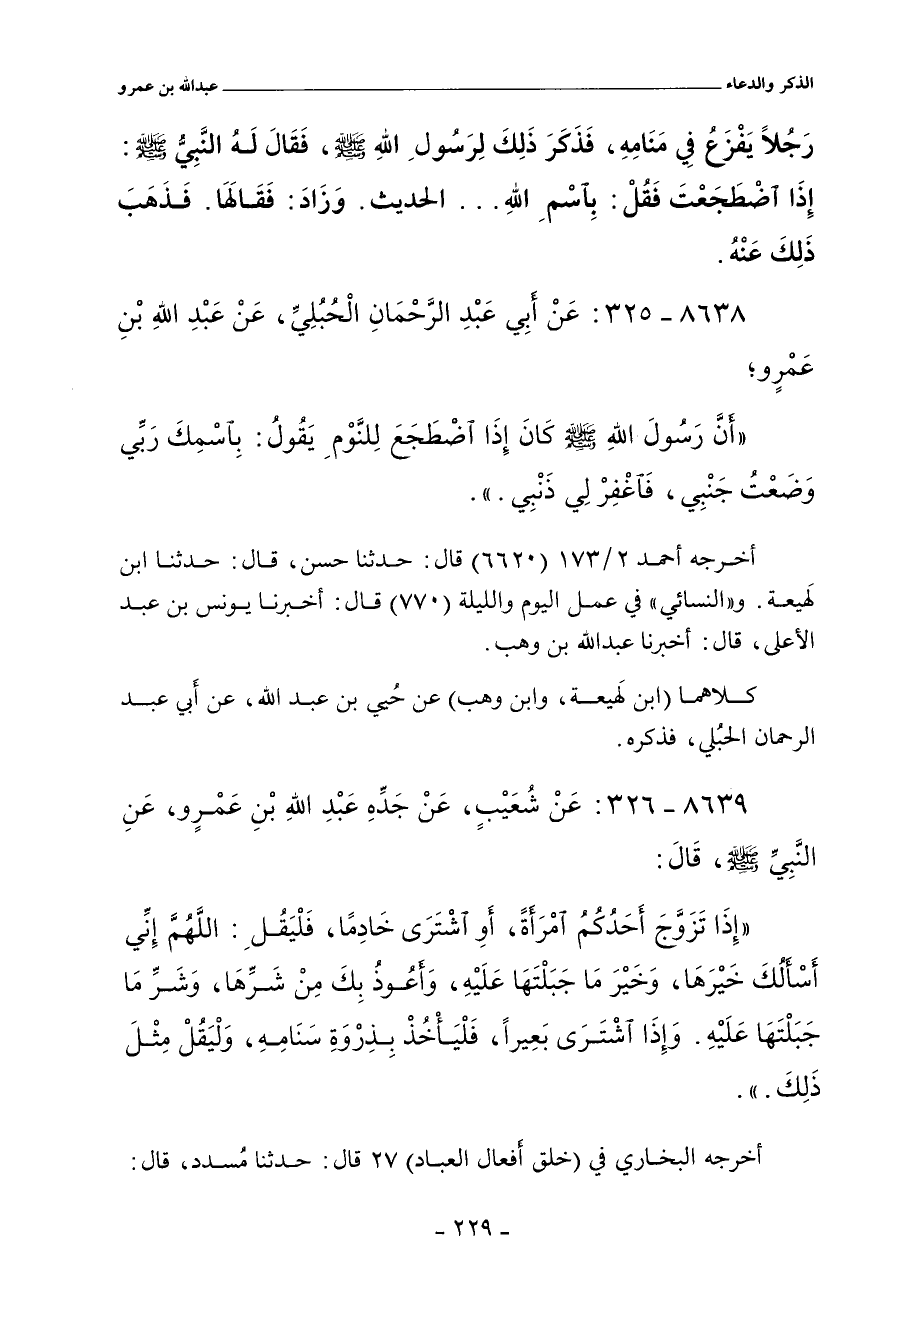 الذكر والدعاء ــــــــــــــــــــ عبدالله بن عمرو
رَجُلاً يَفْزَعُ فِي مَنَامِهِ، فَذَكَرَ ذَلِكَ لِرَسُولِ اللهِ ﷺ، فَقَالَ لَهُ النَّبِيُّ ﷺ:
إِذَا ٱضْطَجَعْتَ فَقُلْ: بِٱسْمِ اللهِ... الحديث. وَزَادَ: فَقَالَهَا. فَذَهَبَ
ذَلِكَ عَنْهُ.
٨٦٣٨ - ٣٢٥: عَنْ أَبِي عَبْدِ الرَّحْمَانِ الْحُبُلِيِّ، عَنْ عَبْدِ اللهِ بْنِ
عَمْرٍو؛
«أَنَّ رَسُولَ اللهِ ﷺ كَانَ إِذَا ٱضْطَجَعَ لِلنَّوْمِ يَقُولُ: بِٱسْمِكَ رَبِّي
وَضَعْتُ جَنْبِي، فَٱغْفِرْ لِي ذَنْبِي.».
أخرجه أحمد ١٧٣/٢ (٦٦٢٠) قال: حدثنا حسن، قال: حدثنا ابن
لَهيعة. و«النسائي» في عمل اليوم والليلة (٧٧٠) قال: أخبرنا يونس بن عبد
الأعلى، قال: أخبرنا عبدالله بن وهب.
كلاهما (ابن لَهيعة، وابن وهب) عن حُيي بن عبد الله، عن أَبي عبد
الرحمان الحُبُلي، فذكره.
٨٦٣٩ - ٣٢٦: عَنْ شُعَيْبٍ، عَنْ جَدِّهِ عَبْدِ اللهِ بْنِ عَمْرٍو، عَنِ
النَّبِيِّ ﷺ، قَالَ:
«إِذَا تَزَوَّجَ أَحَدُكُمُ ٱمْرَأَةً، أَوِ ٱشْتَرَى خَادِمًا، فَلْيَقُلِ: اللَّهُمَّ إِنِّي
أَسْأَلُكَ خَيْرَهَا، وَخَيْرَ مَا جَبَلْتَهَا عَلَيْهِ، وَأَعُوذُ بِكَ مِنْ شَرِّهَا، وَشَرِّ مَا
جَبَلْتَهَا عَلَيْهِ. وَإِذَا ٱشْتَرَى بَعِيراً، فَلْيَأْخُذْ بِذِرْوَةِ سَنَامِهِ، وَلْيَقُلْ مِثْلَ
ذَلِكَ.».
أخرجه البخاري في (خلق أفعال العباد) ٢٧ قال: حدثنا مُسدد، قال:
- ٢٢٩ -